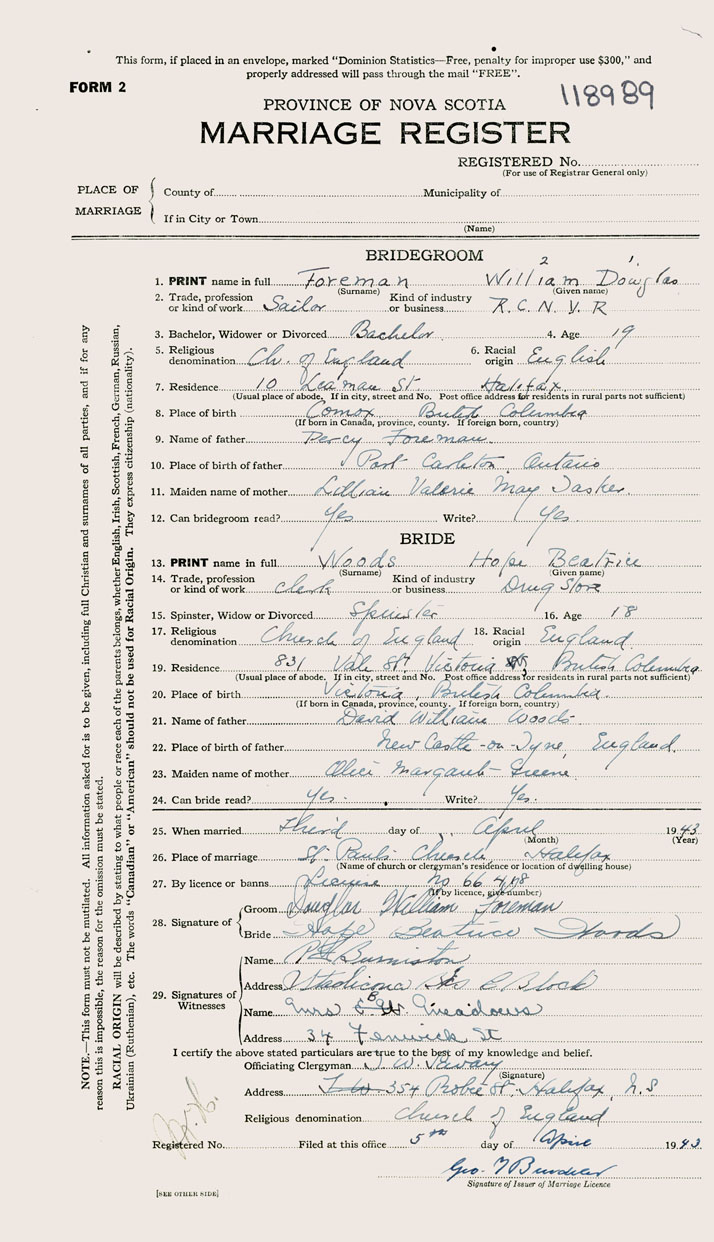 This form, if placed in an envelope, marked "Dominion Statistics—Free, penalty for improper use $300," and
properly addressed will pass through the mail "FREE".
FORM 2
118989
PROVINCE OF NOVA SCOTIA
MARRIAGE REGISTER
REGISTERED No.
(For use of Registrar General only)
PLACE OF MARRIAGE
County of Municipality of
If in City or Town
(Name)
BRIDEGROOM
2 1.
1. PRINT name in full Foreman William Douglas
(Surname) (Given name)
2. Trade, profession or kind of work Sailor Kind of industry or business R.C.N.V.R
3. Bachelor, Widower or Divorced Bachelor 4. Age 19
5. Religious denomination Ch. of England 6. Racial origin English
7. Residence 10 Leaman St Halifax
(Usual place of abode. If in city, street and No. Post office address for residents in rural parts not sufficient)
8. Place of birth Comox British Columbia
(If born in Canada, province, county. If foreign born, country)
9. Name of father Percy Foreman
10. Place of birth of father Port Carleton, Ontario
11. Maiden name of mother Lillian Valerie May Tasker
12. Can bridegroom read? Yes Write? Yes.
BRIDE
13. PRINT name in full Woods Hope Beatrice
(Surname) (Given name)
14. Trade, profession or kind of work clerk Kind of industry or business Drug Store
15. Spinster, Widow or Divorced Spinster 16. Age 18
17. Religious denomination Church of England 18. Racial origin England.
19. Residence 831 Vale St. Victoria British Columbia
(Usual place of abode. If in city, street and No. Post office address for residents in rural parts not sufficient)
20. Place of birth Victoria, British Columbia.
(If born in Canada, province, county. If foreign born, country)
21. Name of father David William Woods
22. Place of birth of father New Castle-on-Tyne, England.
23. Maiden name of mother Alice Margaret Greene
24. Can bride read? Yes. Write? Yes.
25. When married Third day of April 1943
(Month) (Year)
26. Place of marriage St. Paul's Church, Halifax
(Name of church or clergyman's residence or location of dwelling house)
27. By licence or banns License No 66 418
(If by licence, give number)
28. Signature of
Groom Douglas William Foreman
Bride Hope Beatrice Woods
29. Signatures of Witnesses
Name Burniston
Address Stadicona C Block
Name Mrs Meadows
Address 34 Fenwick St
I certify the above stated particulars are true to the best of my knowledge and belief.
Officiating Clergyman
(Signature)
Address 354 Robie St. Halifax, N.S
Religious denomination Church of England
Registered No. Filed at this office 5th day of April 1943
Geo.
Signature of Issuer of Marriage Licence
[SEE OTHER SIDE]
NOTE.—This form must not be mutilated. All information asked for is to be given, including full Christian and surnames of all parties, and if for any
reason this is impossible, the reason for the omission must be stated.
RACIAL ORIGIN will be described by stating to what people or race each of the parents belongs, whether English, Irish, Scottish, French, German, Russian,
Ukrainian (Ruthenian), etc. The words "Canadian" or "American" should not be used for Racial Origin. They express citizenship (nationality).